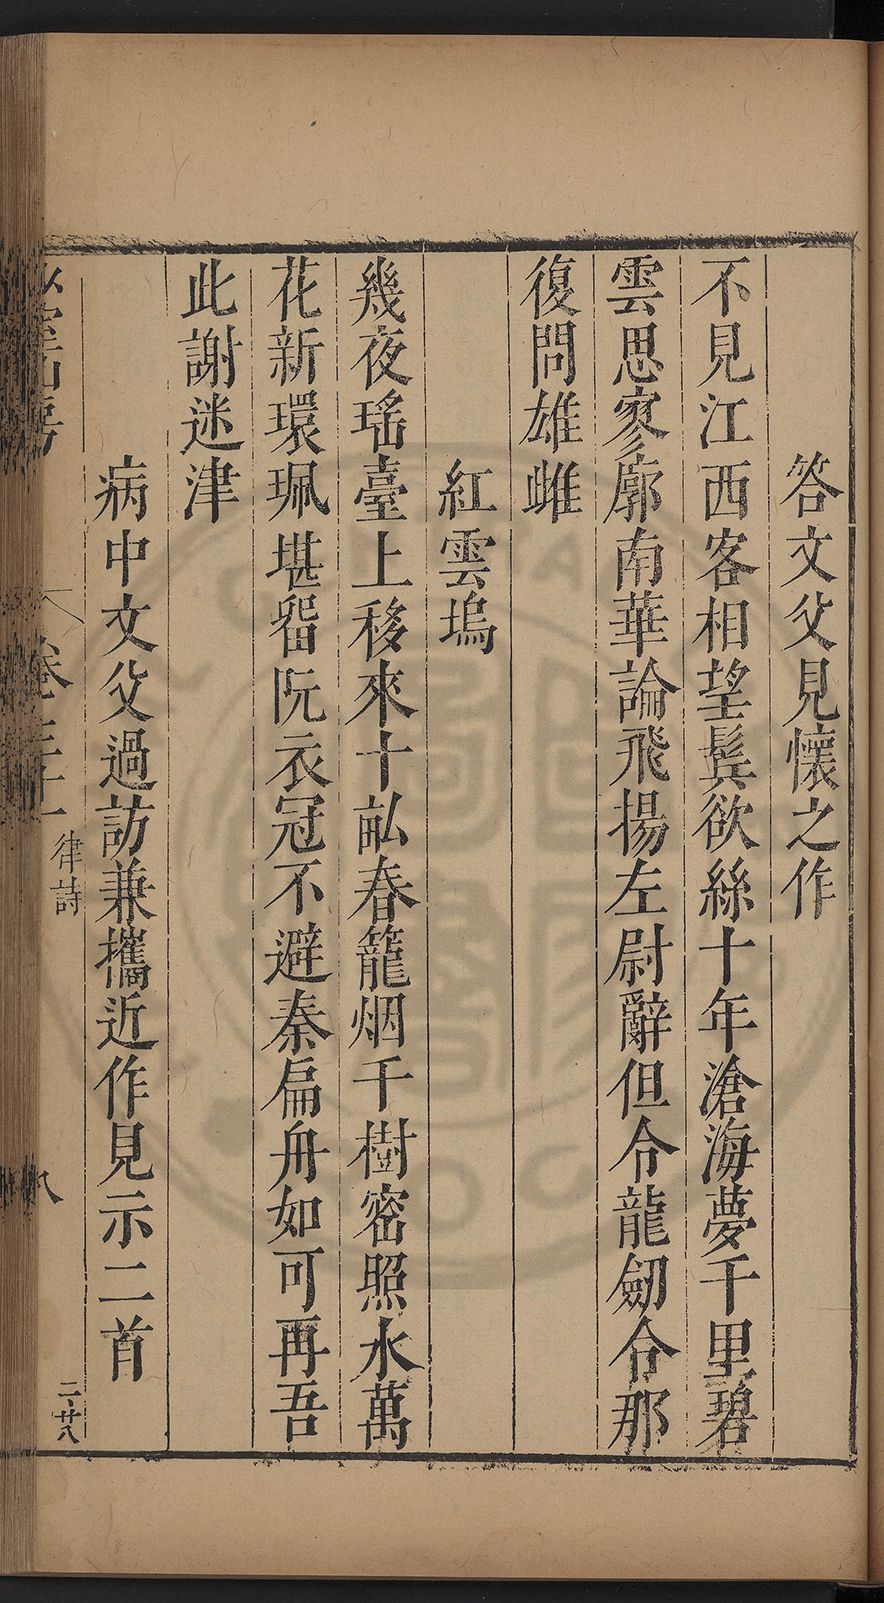 答文父見懷之作
不見江西客相望鬂欲絲十年滄海夢千里碧
雲思寥廓南華論飛揚左尉辭但令龍劒合那
復問雄雌
紅雲塢
幾夜瑤臺上移來十畝春籠烟千樹密照水萬
花新環珮堪留阮衣冠不避秦扁舟如可再吾
此謝迷津
病中文父過訪兼攜近作見示二首
律詩
二廿八